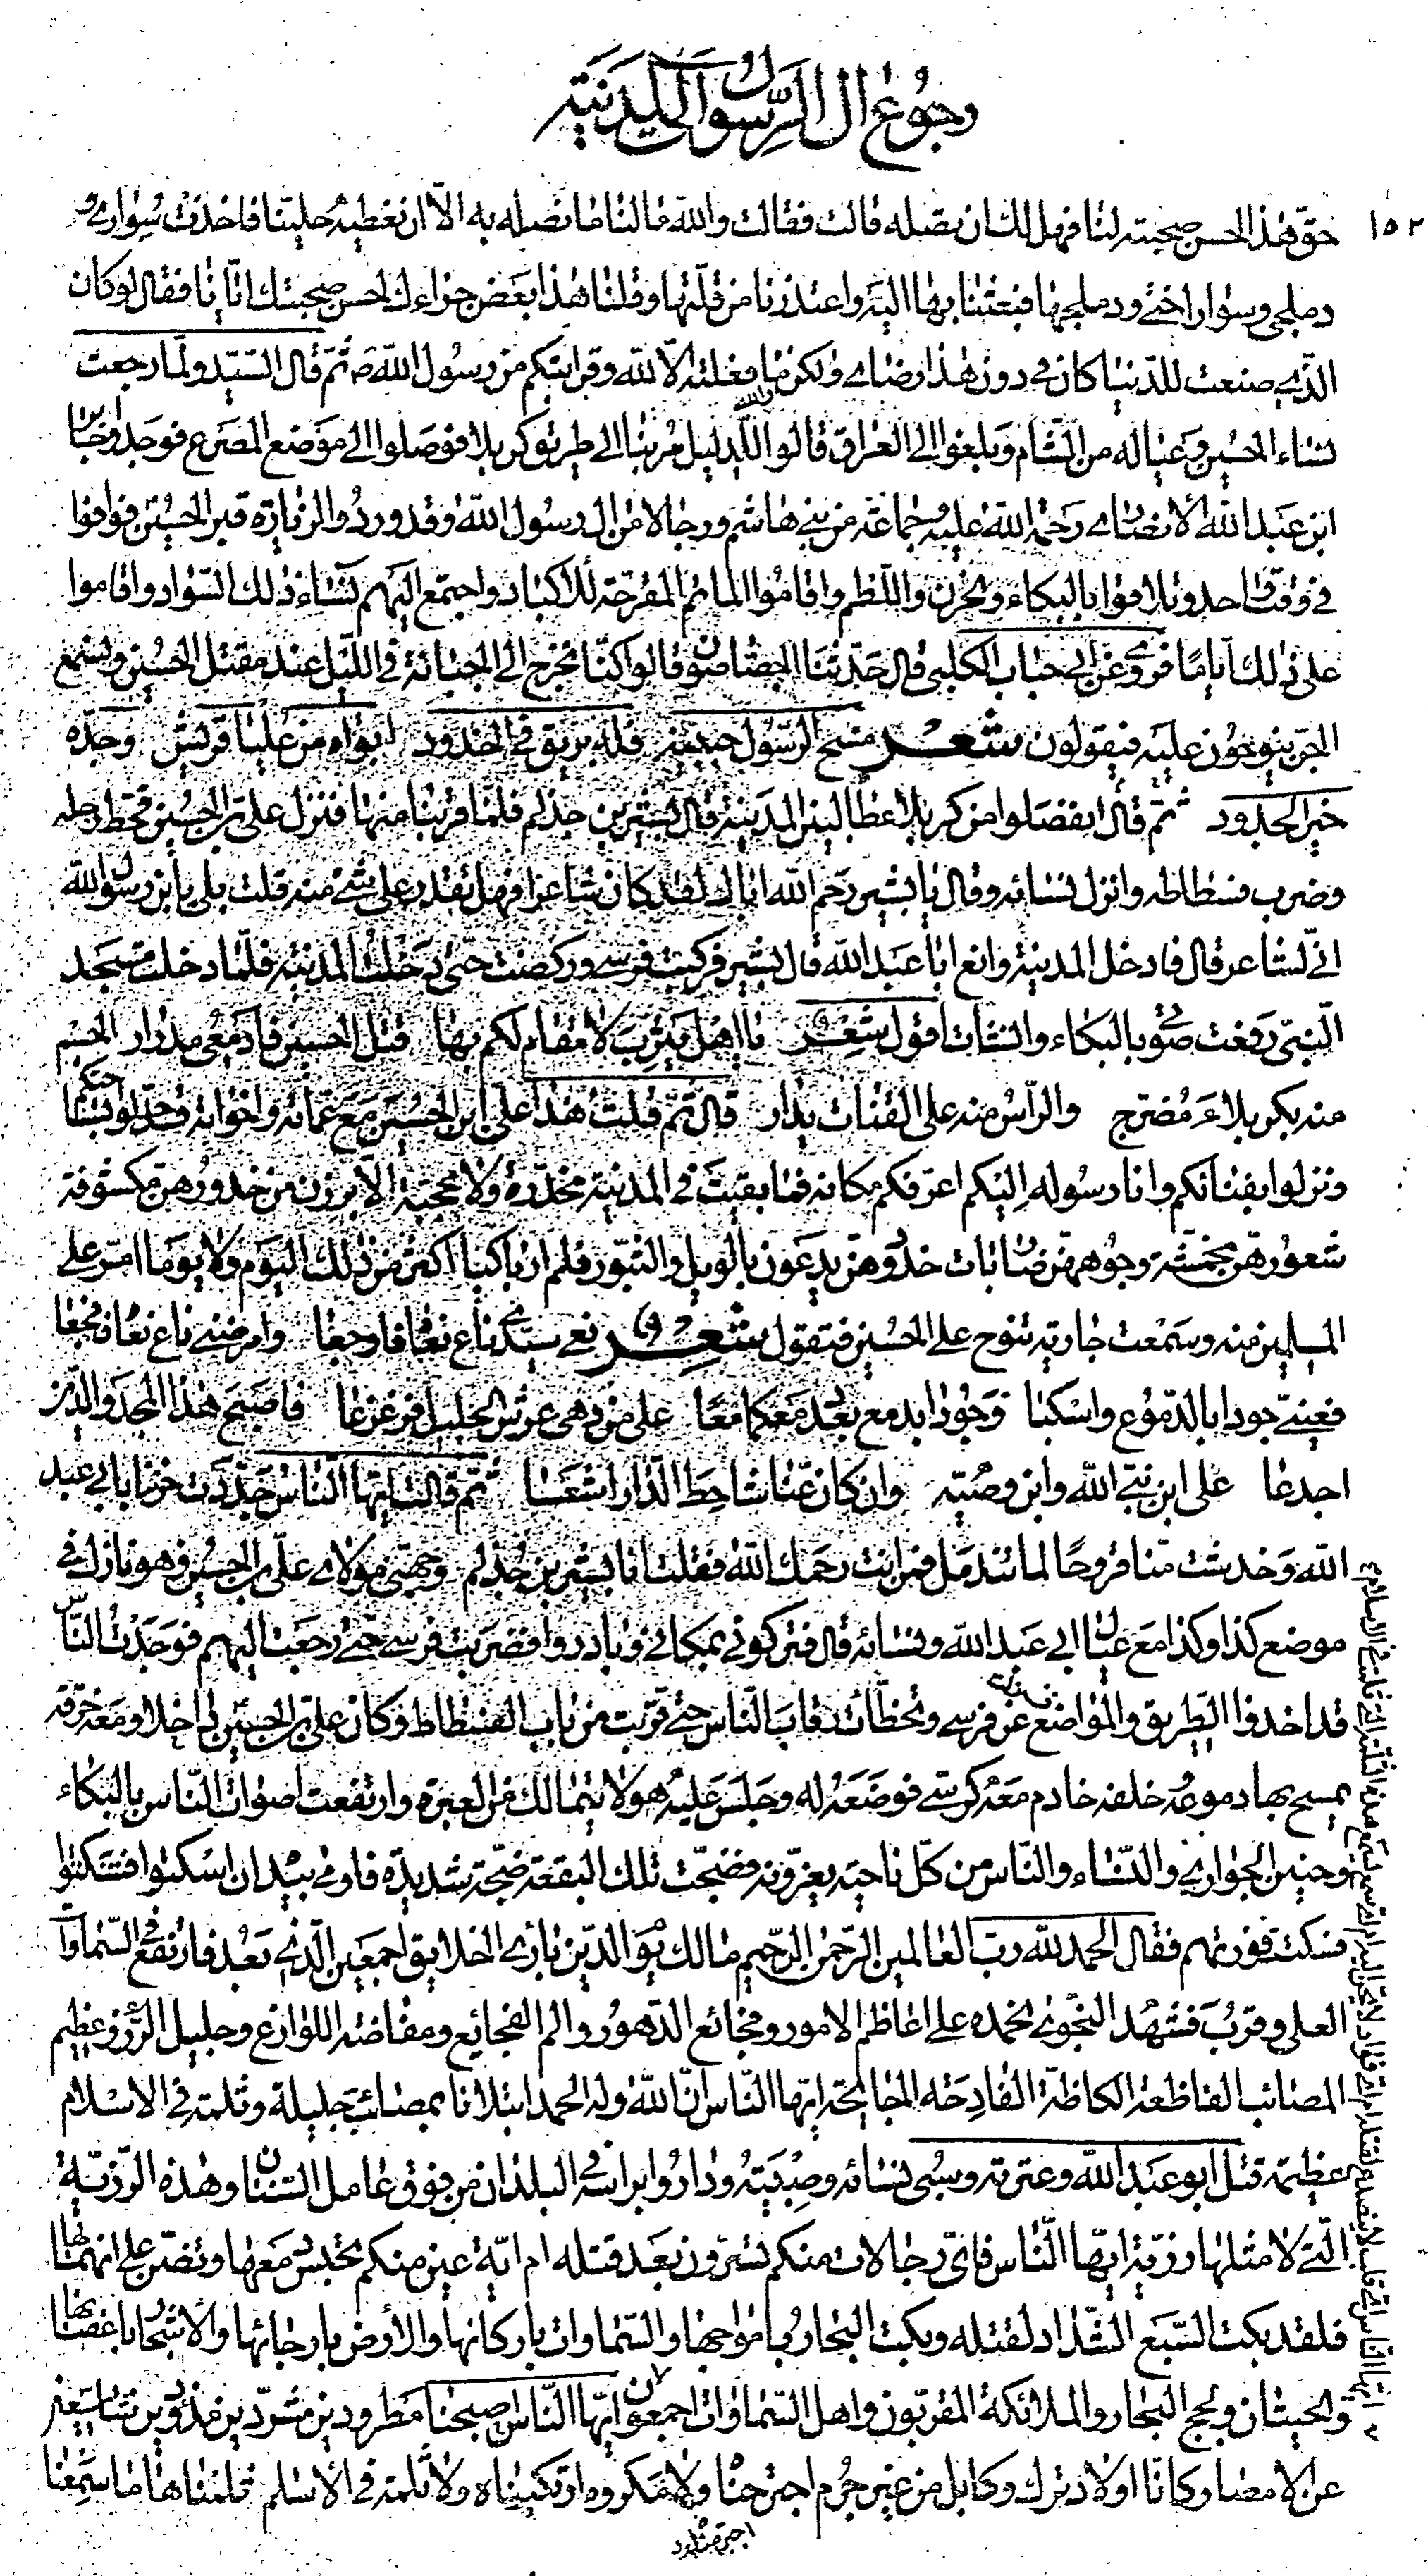 رجوع ال الرسول الى المدينة
١٥٢
حق هذا لحسن صحبته لنا فهل لك ان نصله قالت فقالت والله ما لنا ما نصله به الا ان نعطيه حلينا فاخذت سواري و
دملجي وسوار اختي ودملجها فبعثنا بها اليه واعتذرنا من قلتها وقلنا هذا بعض جزاءك لحسن صحبتك ايانا فقال لو كان
الذي صنعت للدنيا كان في دون هذا رضاي ولكن والله ما فعلته الا لله وقرابتكم من رسول الله ص ثم قال السيد ولما رجعت
نساء الحسين وعياله من الشام وبلغوا الى العراق قالوا للدليل مر بنا الى طريق كربلا فوصلوا الى موضع المصرع فوجدوا جابر
ابن عبد الله الانصاري رحمة الله عليه وجماعة من بني هاشم ورجالا من ال رسول الله وقد وردوا لزيارة قبر الحسين فوافوا
في وقت واحد وتلاقوا بالبكاء والحزن واللطم واقاموا الماتم المقرحة للاكباد واجتمع اليهم نساء ذلك السواد واقاموا
على ذلك اياما فروي عن ابي حباب الكلبي قال حدثنا الجصاصون قالوا كنا نخرج الى الجبانة في الليل عند مقتل الحسين ونسمع
الجن ينوحون عليه فيقولون شعر مسح الرسول جبينه فله بريق في الخدود ابواه من عليا قريش وجده
خير الجدود ثم قال انفصلوا من كربلا طالبين المدينة قال بشير بن حذلم فلما قربنا منها فنزل علي بن الحسين فحط رحله
وضرب فسطاطه وانزل نسائه وقال يا بشير رحم الله اباك لقد كان شاعرا فهل تقدر على شئ منه قلت بلى يا بن رسول الله
اني لشاعر قال فادخل المدينة وانع ابا عبد الله قال بشير فركبت فرسي وركضت حتى دخلت المدينة فلما دخلت مسجد
النبي رفعت صوتي بالبكاء وانشات اقول شعر يا اهل يثرب لا مقام لكم بها قتل الحسين فادمعي مدرار الجسم
منه بكربلاء مضرج والراس منه على القناة يدار قال ثم قلت هذا علي ابن الحسين مع عماته واخواته قد حلوا بساحتكم
ونزلوا بفنائكم وانا رسوله اليكم اعرفكم مكانه فما بقيت في المدينة مخدرة ولا محجبة الا برزن من خدورهن مكشوفة
شعورهن مخمشة وجوههن ضاربات خدودهن يدعون بالويل والثبور فلم ار باكيا اكثر من ذلك اليوم ولا يوما امر على
المسلمين منه وسمعت جارية تنوح على الحسين فتقول شعر نعى سيدي ناع نعاه فاوجعا وامرضني ناع نعاه فافجعا
فعيني جودا بالدموع واسكبا وجودا بدمع بعد دمعكما معا على من دهى عرش الجليل فزعزعا فاصبح هذا المجد والدين
اجدعا على ابن نبي الله وابن وصيه وان كان عنا شاحط الدار اشسعا ثم قالت ايها الناس جددت حزننا بابي عبد
الله وخدشت منا قروحا لما تندمل فمن انت رحمك الله فقلت انا بشير بن حذلم وجهني مولاي علي بن الحسين وهو نازل في
موضع كذا وكذا مع عيال ابي عبد الله ونسائه قال فتركوني بمكاني وبادروا فضربت فرسي حتى رجعت اليهم فوجدت الناس
قد اخذوا الطريق والمواضع فنزلت عن فرسي وتخطات رقاب الناس حتى قربت من باب الفسطاط وكان علي بن الحسين داخلا ومعه خرقة
يمسح بها دموعه خلفه خادم معه كرسي فوضعه له وجلس عليه وهو لا يتمالك من العبرة وارتفعت اصوات الناس بالبكاء
وحنين الجواري والنساء والناس من كل ناحية يعزونه فضجت تلك البقعة ضجة شديدة فاومى بيده ان اسكتوا فسكنوا
فسكت فورتهم فقال الحمد لله رب العالمين الرحمن الرحيم مالك يوم الدين بارئ الخلايق اجمعين الذي بعد فارتفع في السماوات
العلى وقرب فشهد النجوى نحمده على عاظم الامور وفجائع الدهور والم الفجائع ومضاضة اللواذع وجليل الرزء وعظيم
المصائب الفاظعة الكاظة الفادحة الجائحة ايها الناس ان الله وله الحمد ابتلانا بمصائب جليلة وثلمة في الاسلام
عظيمة قتل ابو عبد الله وعترته وسبي نسائه وصبيته وداروا براسه في البلدان من فوق عامل السنان وهذه الرزية
التي لا مثلها رزية ايها الناس فاي رجالات منكم تسرون بعد قتله ام اية عين منكم تحبس دمعها وتضن عن انهمالها
فلقد بكت السبع الشداد لقتله وبكت البحار بامواجها والسماوات باركانها والارض بارجائها والاشجار باغصانها
والحيتان ولجج البحار والملائكة المقربون واهل السماوات اجمعون ايها الناس اصبحنا مطرودين مشردين مذودين شاسعين
عن الامصار كانا اولاد ترك وكابل من غير جرم اجترمناه ولا مكروه ارتكبناه ولا ثلمة في الاسلام ثلمناها ما سمعنا
ايها الناس اي قلب لا ينصدع لقتله ام اي فؤاد لا يحن اليه ام اي سمع يسمع هذه الثلمة التي ثلمت في الاسلام